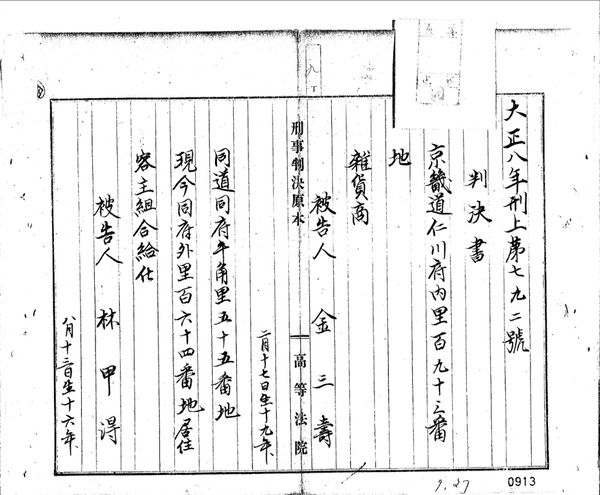 大正八年刑上第七九二號
判決書
京畿道仁川府内里百九十三番
地
雜貨商
被告人 金三壽
二月十七日生十九年
刑事判決原本
高等法院
同道同府牛角里五十五番地
現今同府外里百六十四番地居住
客主組合給仕
被告人 林甲得
八月十三日生十六年
0913